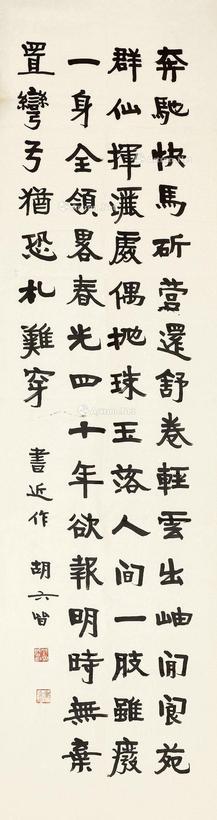 奔馳快馬斫營還舒卷輕雲出岫閒閬苑
群仙揮灑處偶拋珠玉落人間一肢雖癈
一身全領畧春光四十年欲報明時無棄
置彎弓猶恐札難穿
書近作 胡六皆